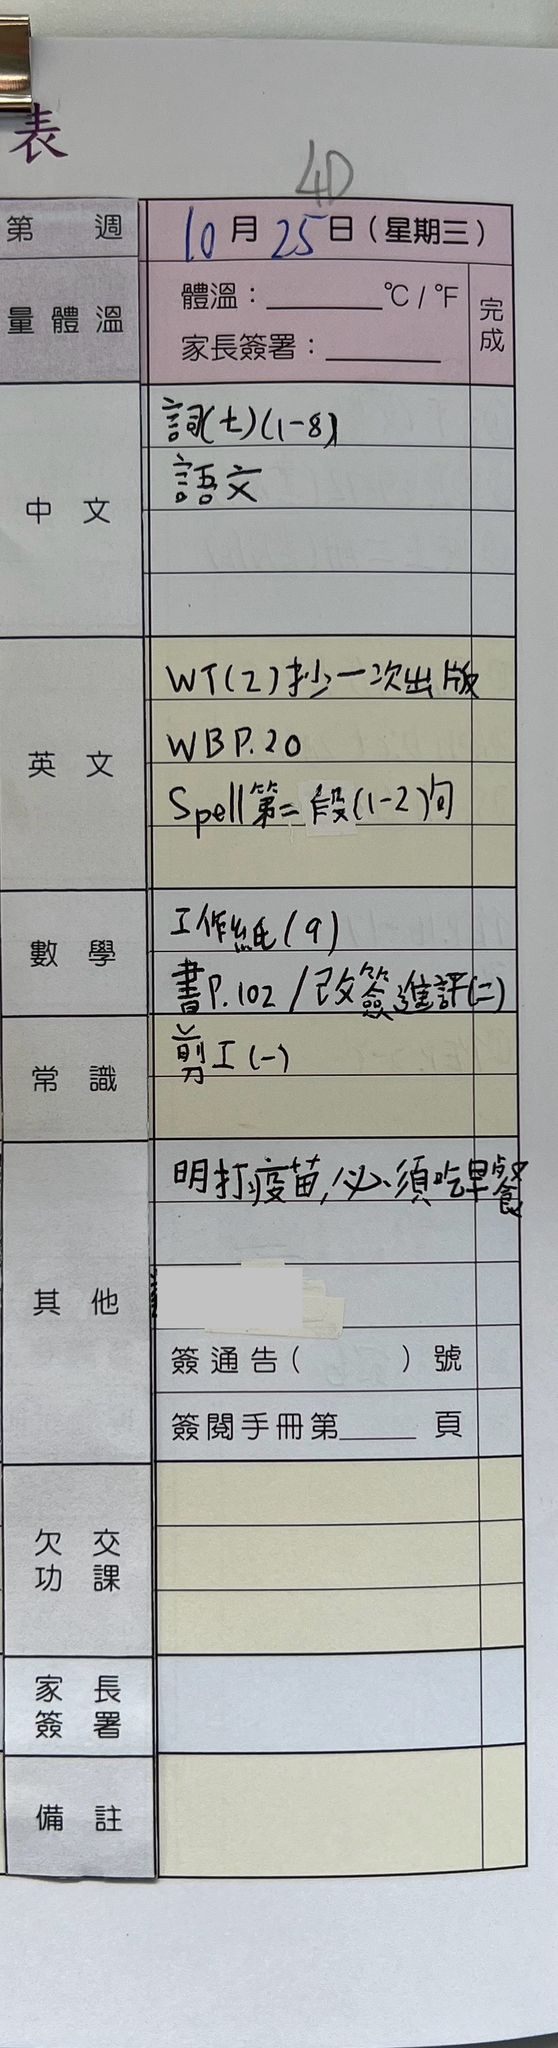 表
4D
第 週 10月25日(星期三)
量體溫 體溫：______℃/℉ 完成
家長簽署：______
中文 詞(七)(1-8)
語文
英文 WT(2)抄一次出版
WB P.20
Spell第二段(1-2)句
數學 工作紙(9)
書P.102/改簽進評(二)
常識 剪工(一)
其他 明打疫苗,必須吃早餐
簽通告( )號
簽閱手冊第____頁
欠交功課
家長簽署
備註